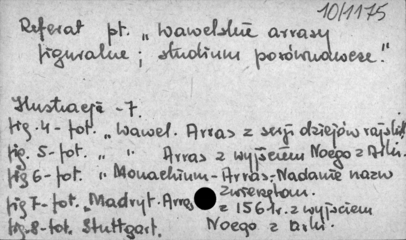 10/1175
Referat pt. „Wawelskie arrasy
figuralne; studium porównawcze."
Ilustracje - 7.
fig. 4 - fot. „Wawel. Arras z serji dziejów rajskich
fig. 5 - fot. „ " Arras z wyjściem Noego z Arki.
fig 6 - fot. „Monachium - Arras - Nadanie nazw
zwierzętom.
fig 7 - fot. „Madryt. Arras z 1561r. z wyjściem
Noego z arki.
fig. 8 - fot. Stuttgart.